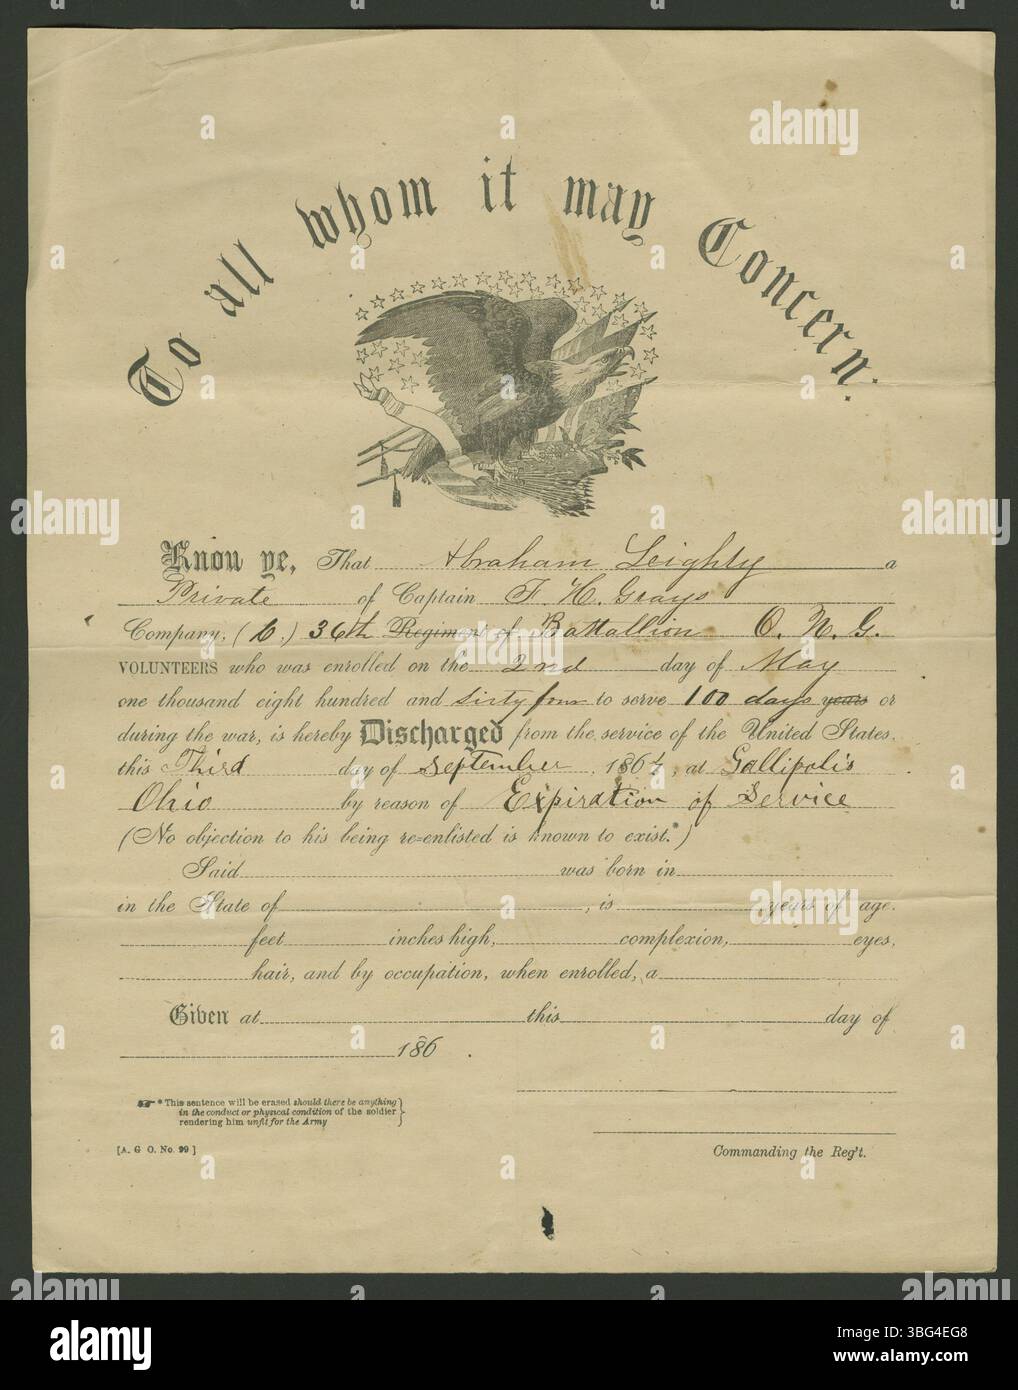 To all whom it may Concern:
Know ye, That Abraham Leighty a
Private of Captain F. H. Grays
Company, (C.) 36th Regiment of Battallion O. N. G.
VOLUNTEERS who was enrolled on the 2nd day of May
one thousand eight hundred and sixty four to serve 100 days years or
during the war, is hereby Discharged from the service of the United States,
this Third day of September, 1864, at Gallipolis
Ohio by reason of Expiration of Service
(No objection to his being re-enlisted is known to exist.*)
Said was born in
in the State of , is years of age,
feet inches high, complexion, eyes,
hair, and by occupation, when enrolled, a
Given at this day of
186 .
* This sentence will be erased should there be anything
in the conduct or physical condition of the soldier
rendering him unfit for the Army
[A. G O. No. 99 ]
Commanding the Reg't.
alamy
Image ID: 3BG4EG8
www.alamy.com